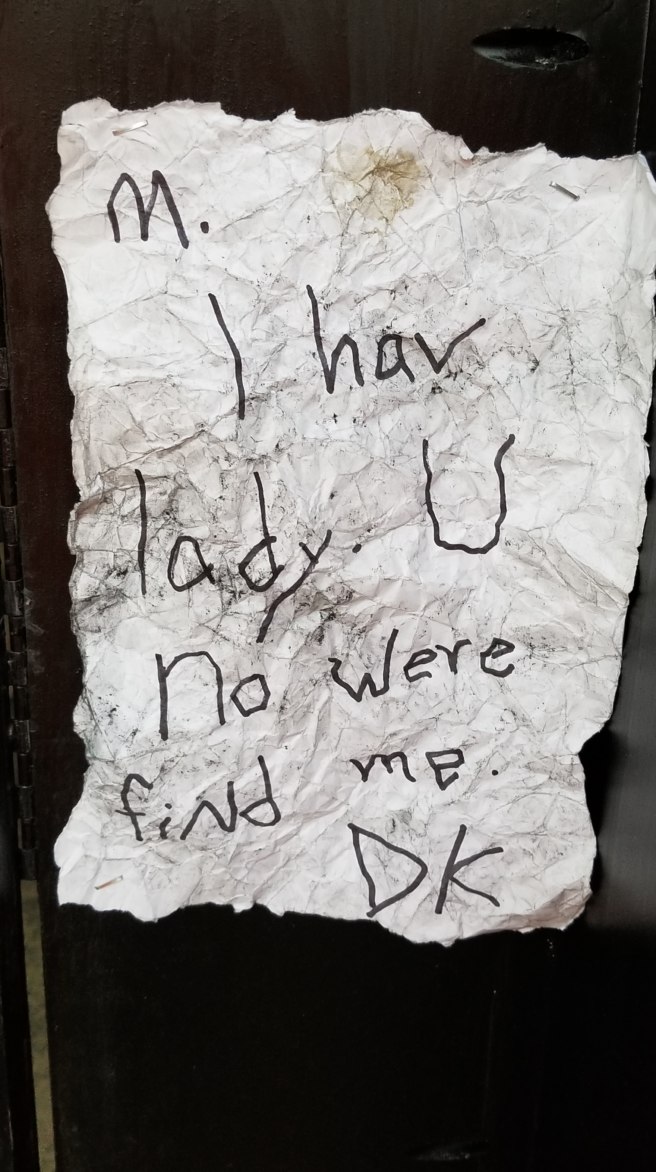 M.
I hav
lady. U
no were
find me.
DK